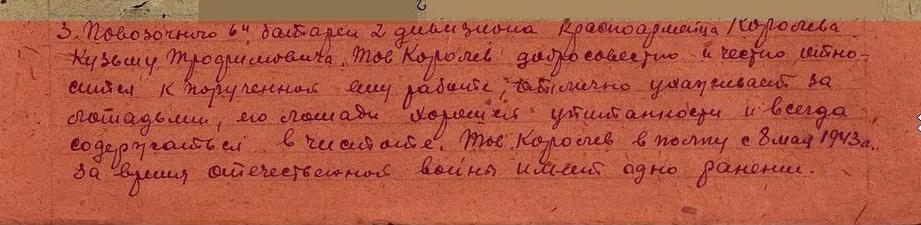 3. Повозочного 6й батареи 2 дивизиона красноармейца Королева
Кузьму Трофимовича. Тов Королев добросовестно и честно отно-
сится к порученной ему работе, отлично ухаживает за
лошадьми, его лошади хорошей упитанности и всегда
содержаться в чистоте. Тов Королев в полку с 8 мая 1943 г.
За время отечественной войны имеет одно ранении.